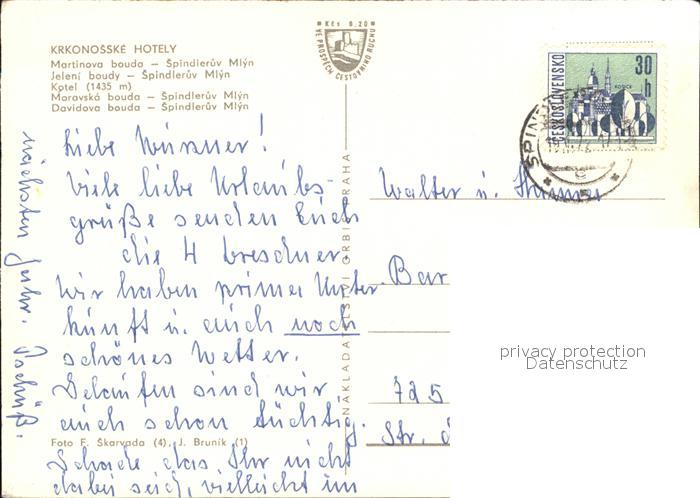 KRKONOŠSKÉ HOTELY
Martinova bouda — Špindlerův Mlýn
Jelení boudy — Špindlerův Mlýn
Kotel (1435 m)
Moravská bouda — Špindlerův Mlýn
Davidova bouda — Špindlerův Mlýn
Kčs 0.20
VE PROSPĚCH CESTOVNÍHO RUCHU
ČESKOSLOVENSKO
30 h
Liebe
Viele liebe Urlaubs-
grüße senden Euch
die 4 Dresdner.
Wir haben prima Unter
kunft u. auch noch
schönes Wetter.
Gelaufen sind wir
auch schon tüchtig.
Foto F. Škarvada (4), J. Bruník (1)
Schade das Ihr nicht
dabei seid, vielleicht im
nächsten Jahr. Tschüß.
NAKLADATELSTVÍ ORBIS, PRAHA
Walter u.
Bar
725
Str.
privacy protection
Datenschutz